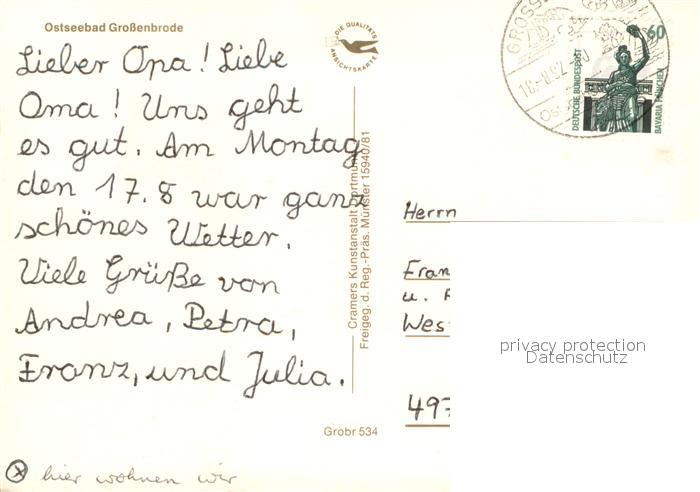 Ostseebad Großenbrode
DIE QUALITÄTS
ANSICHTSKARTE
Lieber Opa! Liebe
Oma! Uns geht
es gut. Am Montag
den 17.8 war ganz
schönes Wetter.
Viele Grüße von
Andrea, Petra,
Franz, und Julia.
hier wohnen wir
Cramers Kunstanstalt Dortmund
Freigeg. d. Reg.-Präs. Münster 15940/81
Grobr 534
60
DEUTSCHE BUNDESPOST
BAVARIA MÜNCHEN
Herrn
u.
497
privacy protection
Datenschutz